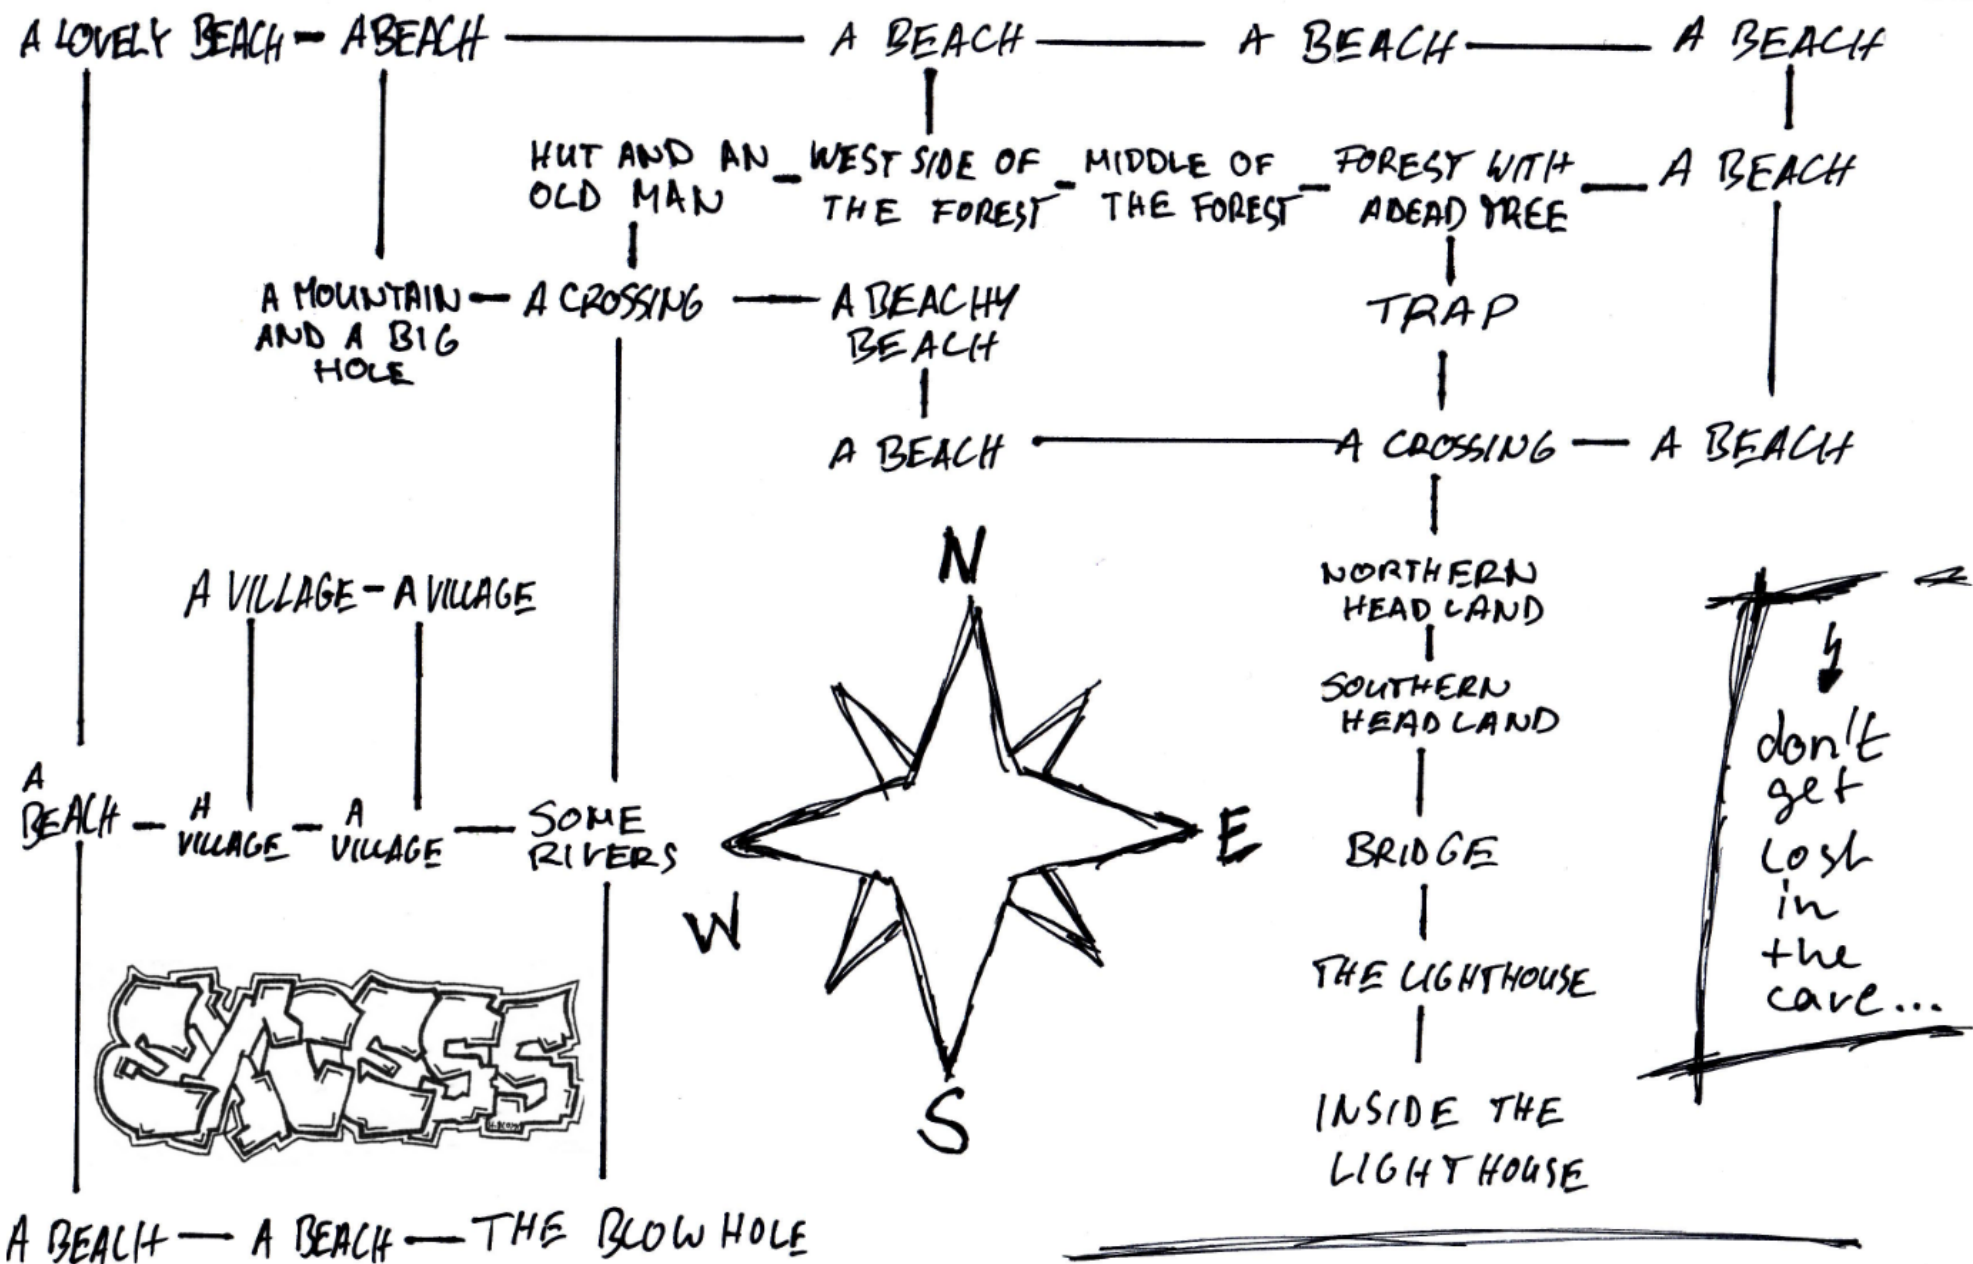 A LOVELY BEACH - A BEACH — A BEACH — A BEACH — A BEACH
HUT AND AN
OLD MAN
WEST SIDE OF
THE FOREST
MIDDLE OF
THE FOREST
FOREST WITH
A DEAD TREE
A BEACH
A MOUNTAIN
AND A BIG
HOLE
A CROSSING
A BEACHY
BEACH
TRAP
A BEACH
A CROSSING
A BEACH
N
NORTHERN
HEADLAND
A VILLAGE - A VILLAGE
SOUTHERN
HEADLAND
A
BEACH
A
VILLAGE
A
VILLAGE
SOME
RIVERS
W
E
BRIDGE
don't
get
lost
in
the
cave...
THE LIGHTHOUSE
S
INSIDE THE
LIGHTHOUSE
A BEACH — A BEACH — THE BLOW HOLE